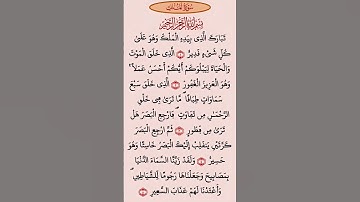 بِسْمِ اللَّهِ الرَّحْمَٰنِ الرَّحِيمِ
تَبَارَكَ الَّذِي بِيَدِهِ الْمُلْكُ وَهُوَ عَلَىٰ
كُلِّ شَيْءٍ قَدِيرٌ الَّذِي خَلَقَ الْمَوْتَ
وَالْحَيَاةَ لِيَبْلُوَكُمْ أَيُّكُمْ أَحْسَنُ عَمَلًا
وَهُوَ الْعَزِيزُ الْغَفُورُ الَّذِي خَلَقَ سَبْعَ
سَمَاوَاتٍ طِبَاقًا مَا تَرَىٰ فِي خَلْقِ
الرَّحْمَٰنِ مِنْ تَفَاوُتٍ فَارْجِعِ الْبَصَرَ هَلْ
تَرَىٰ مِنْ فُطُورٍ ثُمَّ ارْجِعِ الْبَصَرَ
كَرَّتَيْنِ يَنْقَلِبْ إِلَيْكَ الْبَصَرُ خَاسِئًا وَهُوَ
حَسِيرٌ وَلَقَدْ زَيَّنَّا السَّمَاءَ الدُّنْيَا
بِمَصَابِيحَ وَجَعَلْنَاهَا رُجُومًا لِلشَّيَاطِينِ
وَأَعْتَدْنَا لَهُمْ عَذَابَ السَّعِيرِ